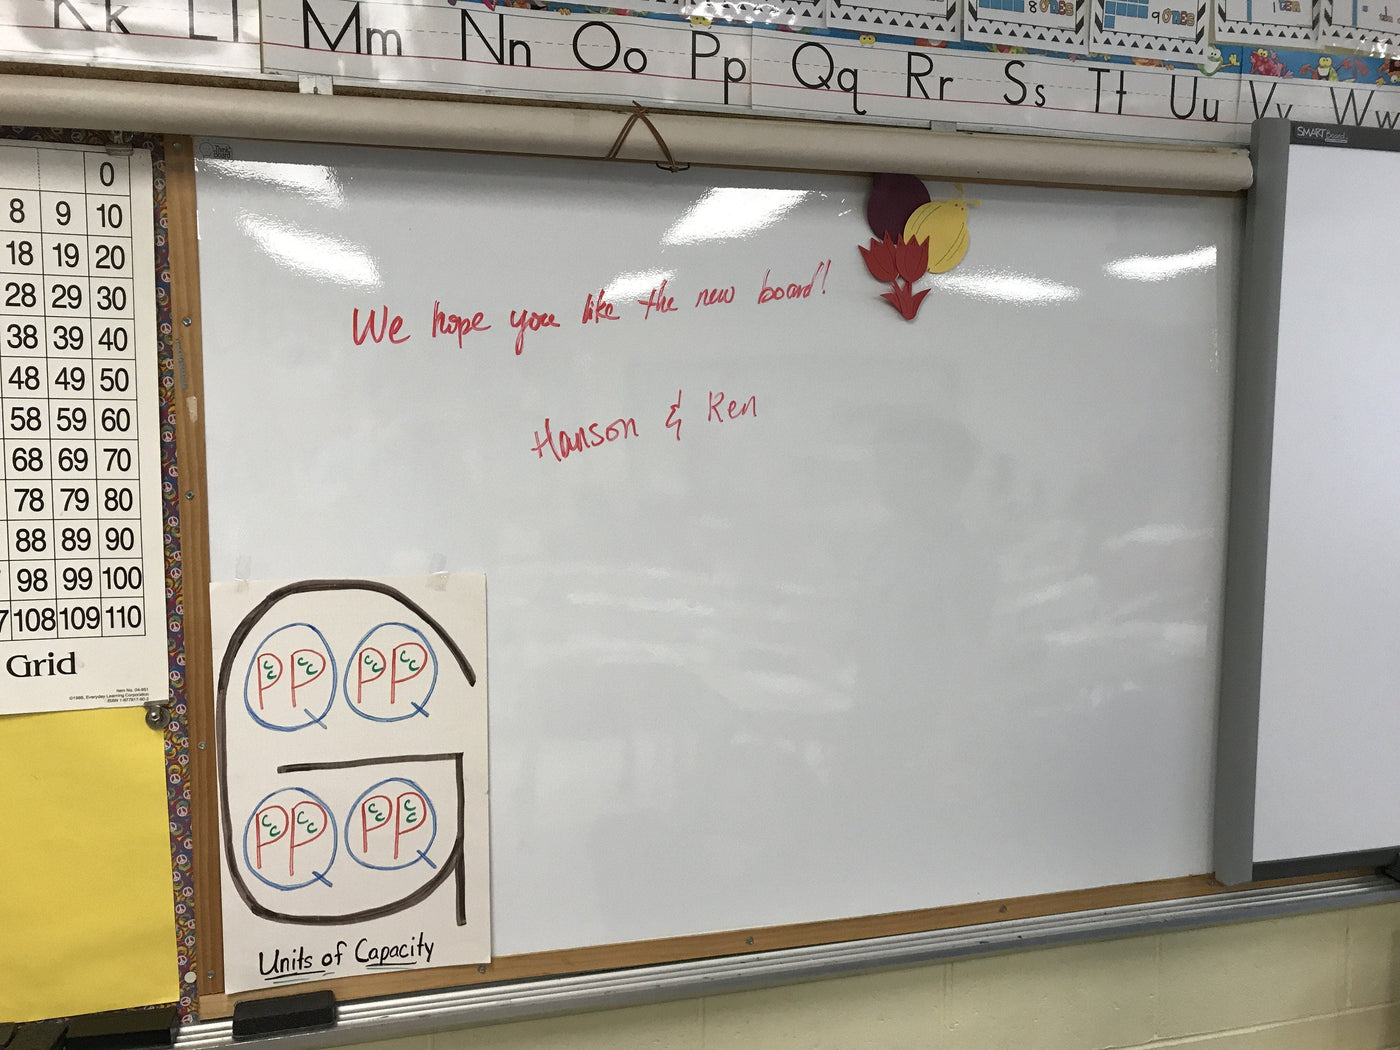 Kk Ll Mm Nn Oo Pp Qq Rr Ss Tt Uu Vv Ww
8 ONES
9 ONES
1 TEN
SMART Board
0
8 9 10
18 19 20
28 29 30
38 39 40
48 49 50
58 59 60
68 69 70
78 79 80
88 89 90
98 99 100
7 108 109 110
Grid
Item No. 04-951
©1998, Everyday Learning Corporation
We hope you like the new board!
Hanson & Ken
G
P C C P C C Q P C C P C C Q
P C C P C C Q P C C P C C Q
Units of Capacity